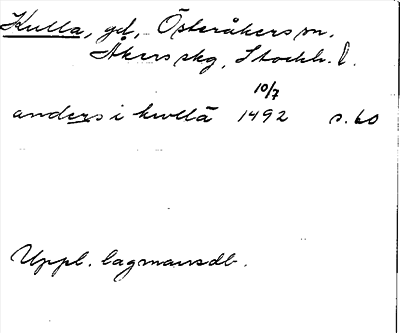 Kulla, gd, Österåkers sn,
Åkers skg, Stockh. l.
10/7
anders i kwllā 1492 s. 60
Uppl. lagmansdb.